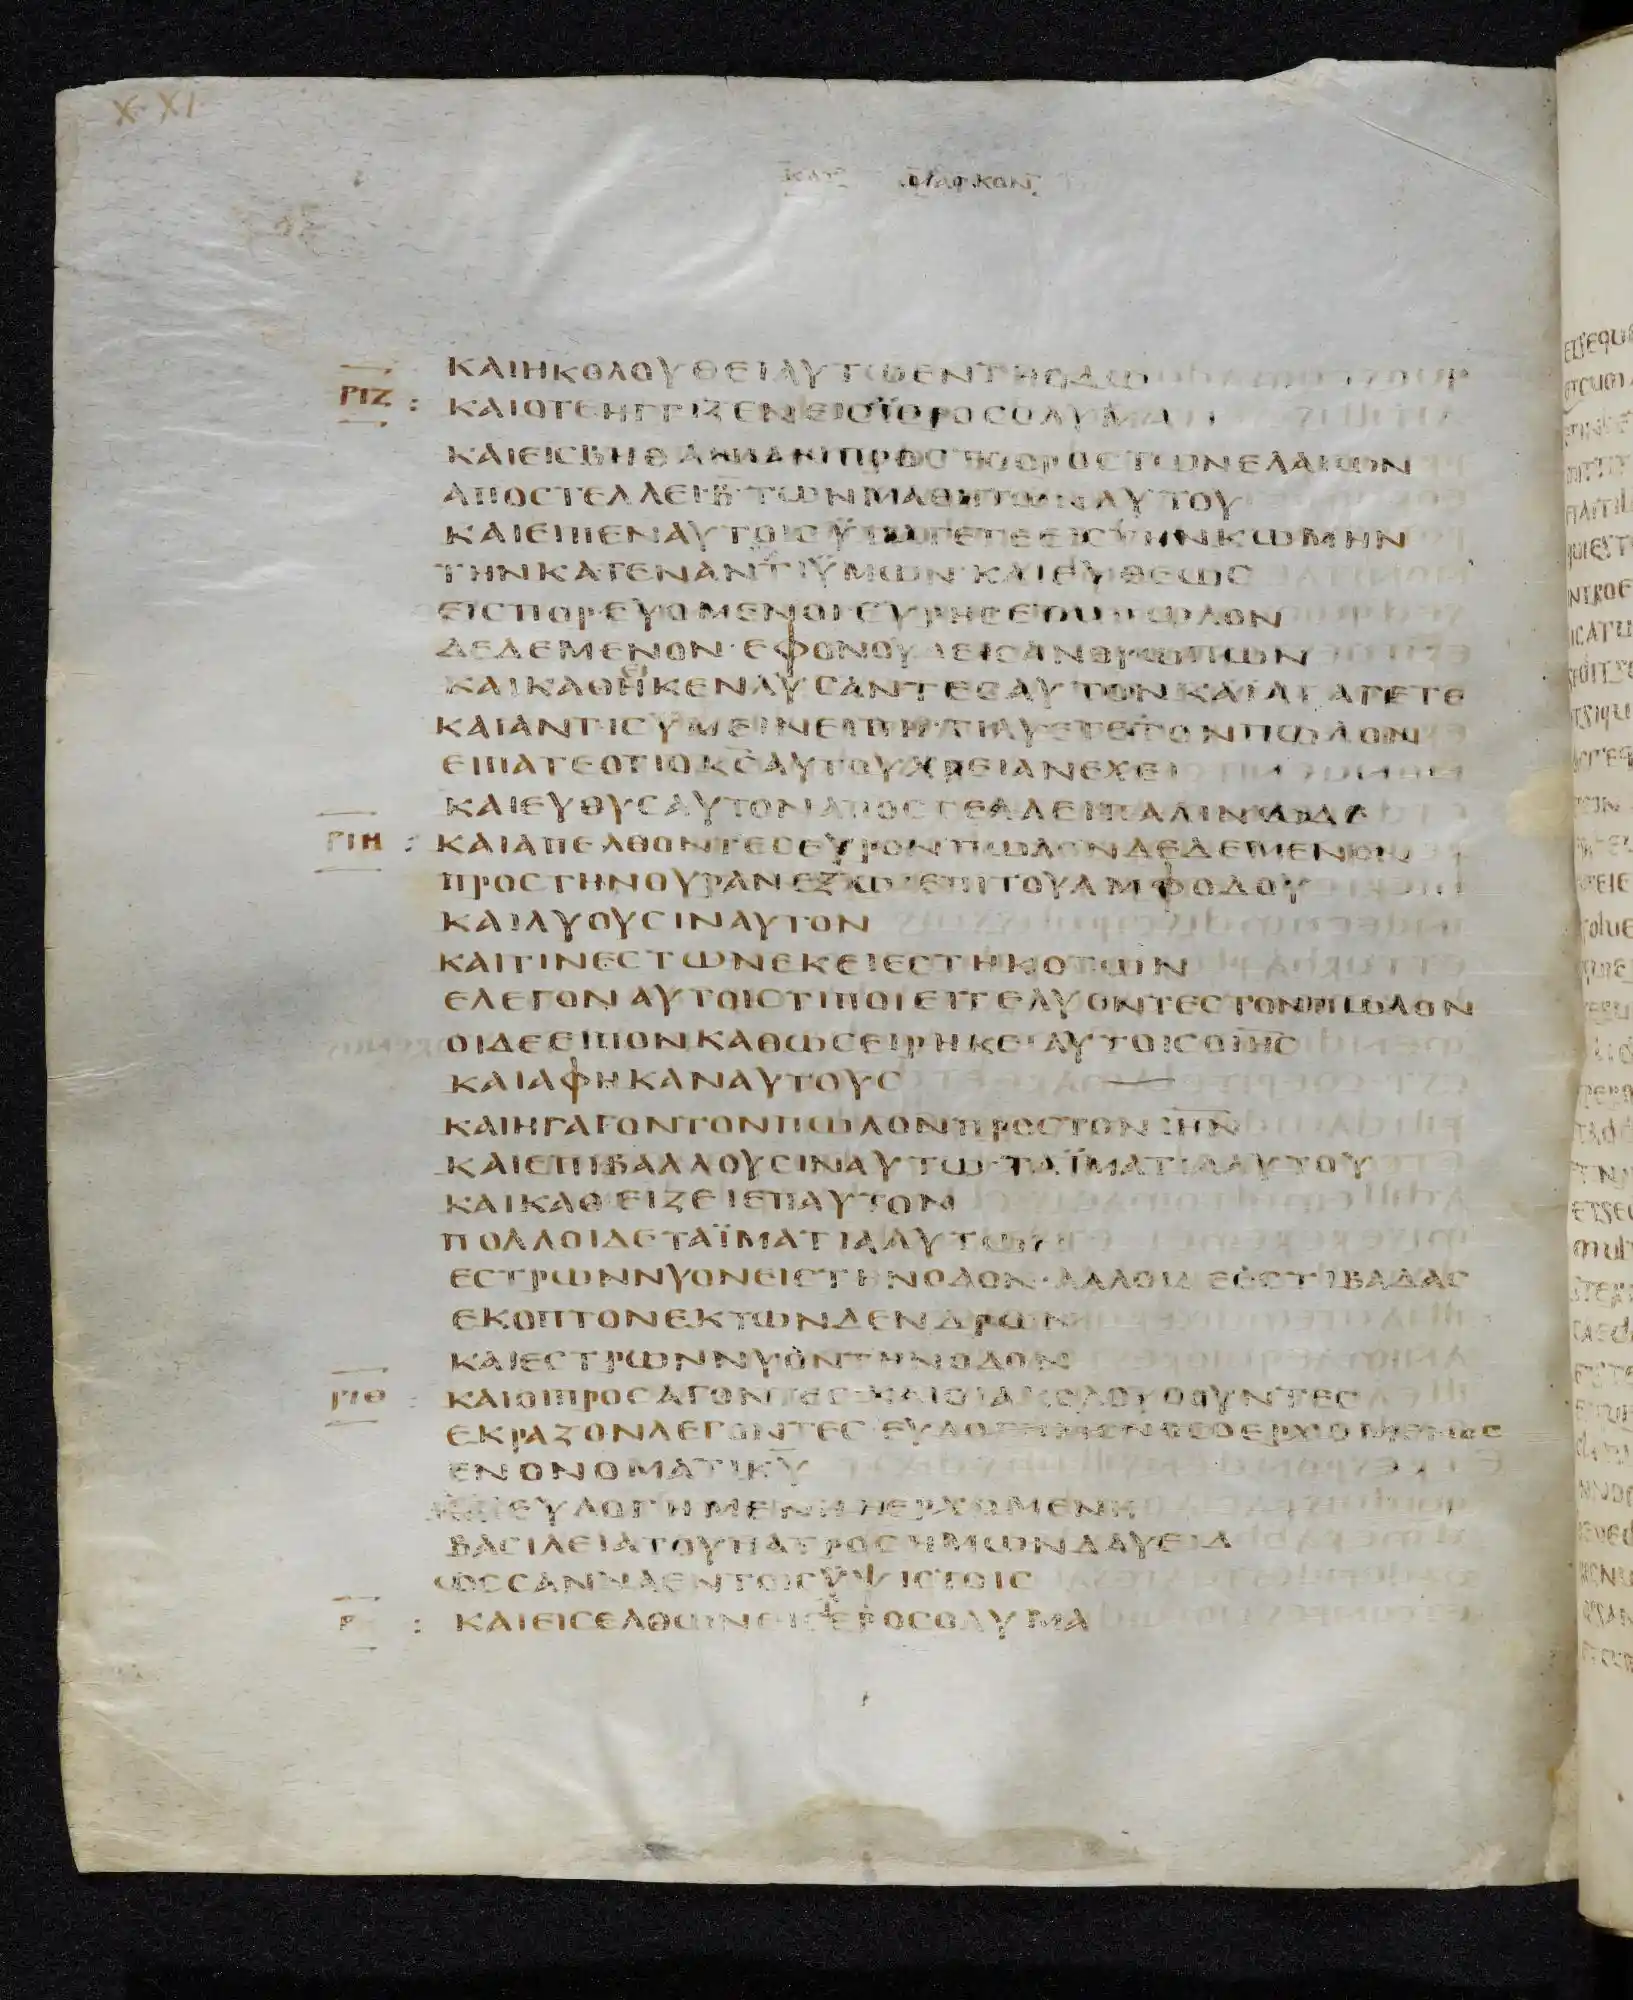 X XI
ΚΑΤ ΜΑΡΚΟΝ
ΚΑΙΗΚΟΛΟΥΘΕΙΑΥΤΩΕΝΤΗΟΔΩ
ΡΙΖ : ΚΑΙΟΤΕΗΓΓΙΖΕΝΕΙΣΪΕΡΟΣΟΛΥΜΑ
ΚΑΙΕΙΣΒΗΘΑΝΙΑΚΑΙΠΡΟΣΤΟΟΡΟΣΤΩΝΕΛΑΙΩΝ
ΑΠΟΣΤΕΛΛΕΙΒ̅ΤΩΝΜΑΘΗΤΩΝΑΥΤΟΥ
ΚΑΙΕΙΠΕΝΑΥΤΟΙΣΫΠΑΓΕΤΕΕΙΣΤΗΝΚΩΜΗΝ
ΤΗΝΚΑΤΕΝΑΝΤΙΫΜΩΝ·ΚΑΙΕΥΘΕΩΣ
ΕΙΣΠΟΡΕΥΟΜΕΝΟΙΕΥΡΗΣΕΤΑΙΠΩΛΟΝ
ΔΕΔΕΜΕΝΟΝ·ΕΦΟΝΟΥΔΕΙΣΑΝΘΡΩΠΩΝ
ΚΑΙΚΑΘΗΚΕΝΛΥΣΑΝΤΕΣΑΥΤΟΝΚΑΙΑΓΑΓΕΤΕ
ΚΑΙΑΝΤΙΣΥΜΕΙΝΕΙΠΗ·ΤΙΛΥΕΤΕΤΟΝΠΩΛΟΝ
ΕΙΠΑΤΕΟΤΙΟΚ̅Σ̅ΑΥΤΟΥΧΡΕΙΑΝΕΧΕΙ
ΚΑΙΕΥΘΥΣΑΥΤΟΝΑΠΟΣΤΕΛΛΕΙΠΑΛΙΝΩΔΕ
ΡΙΗ : ΚΑΙΑΠΕΛΘΟΝΤΕΣΕΥΡΟΝΠΩΛΟΝΔΕΔΕΜΕΝΟΝ
ΠΡΟΣΤΗΝΘΥΡΑΝΕΞΩ·ΕΠΙΤΟΥΑΜΦΟΔΟΥ
ΚΑΙΛΥΟΥΣΙΝΑΥΤΟΝ
ΚΑΙΤΙΝΕΣΤΩΝΕΚΕΙΕΣΤΗΚΟΤΩΝ
ΕΛΕΓΟΝΑΥΤΟΙΣΤΙΠΟΙΕΙΤΕΛΥΟΝΤΕΣΤΟΝΠΩΛΟΝ
ΟΙΔΕΕΙΠΟΝΚΑΘΩΣΕΙΡΗΚΕΙΑΥΤΟΙΣΟΙ̅Η̅Σ̅
ΚΑΙΑΦΗΚΑΝΑΥΤΟΥΣ
ΚΑΙΗΓΑΓΟΝΤΟΝΠΩΛΟΝΠΡΟΣΤΟΝΙ̅Η̅Ν̅
ΚΑΙΕΠΙΒΑΛΛΟΥΣΙΝΑΥΤΩ·ΤΑΪΜΑΤΙΑΑΥΤΟΥ
ΚΑΙΚΑΘΕΙΖΕΙΕΠΑΥΤΟΝ
ΠΟΛΛΟΙΔΕΤΑΪΜΑΤΙΑΑΥΤΩΝ
ΕΣΤΡΩΝΝΥΟΝΕΙΣΤΗΝΟΔΟΝ·ΑΛΛΟΙΔΕΕΣΤΙΒΑΔΑΣ
ΕΚΟΠΤΟΝΕΚΤΩΝΔΕΝΔΡΩΝ
ΚΑΙΕΣΤΡΩΝΝΥΟΝΤΗΝΟΔΟΝ
ΡΙΘ : ΚΑΙΟΙΠΡΟΣΑΓΟΝΤΕΣ·ΚΑΙΟΙΑΚΟΛΟΥΘΟΥΝΤΕΣ
ΕΚΡΑΖΟΝΛΕΓΟΝΤΕΣ·ΕΥΛΟΓΗΜΕΝΟΣΟΕΡΧΟΜΕΝΟΣ
ΕΝΟΝΟΜΑΤΙΚ̅Υ̅
ΚΑΙΕΥΛΟΓΗΜΕΝΗΗΕΡΧΟΜΕΝΗ
ΒΑΣΙΛΕΙΑΤΟΥΠΑΤΡΟΣΗΜΩΝΔΑΥΕΙΔ
ΩΣΣΑΝΝΑΕΝΤΟΙΣΫΨΙΣΤΟΙΣ
Ρ : ΚΑΙΕΙΣΕΛΘΩΝΕΙΣΙΕΡΟΣΟΛΥΜΑ